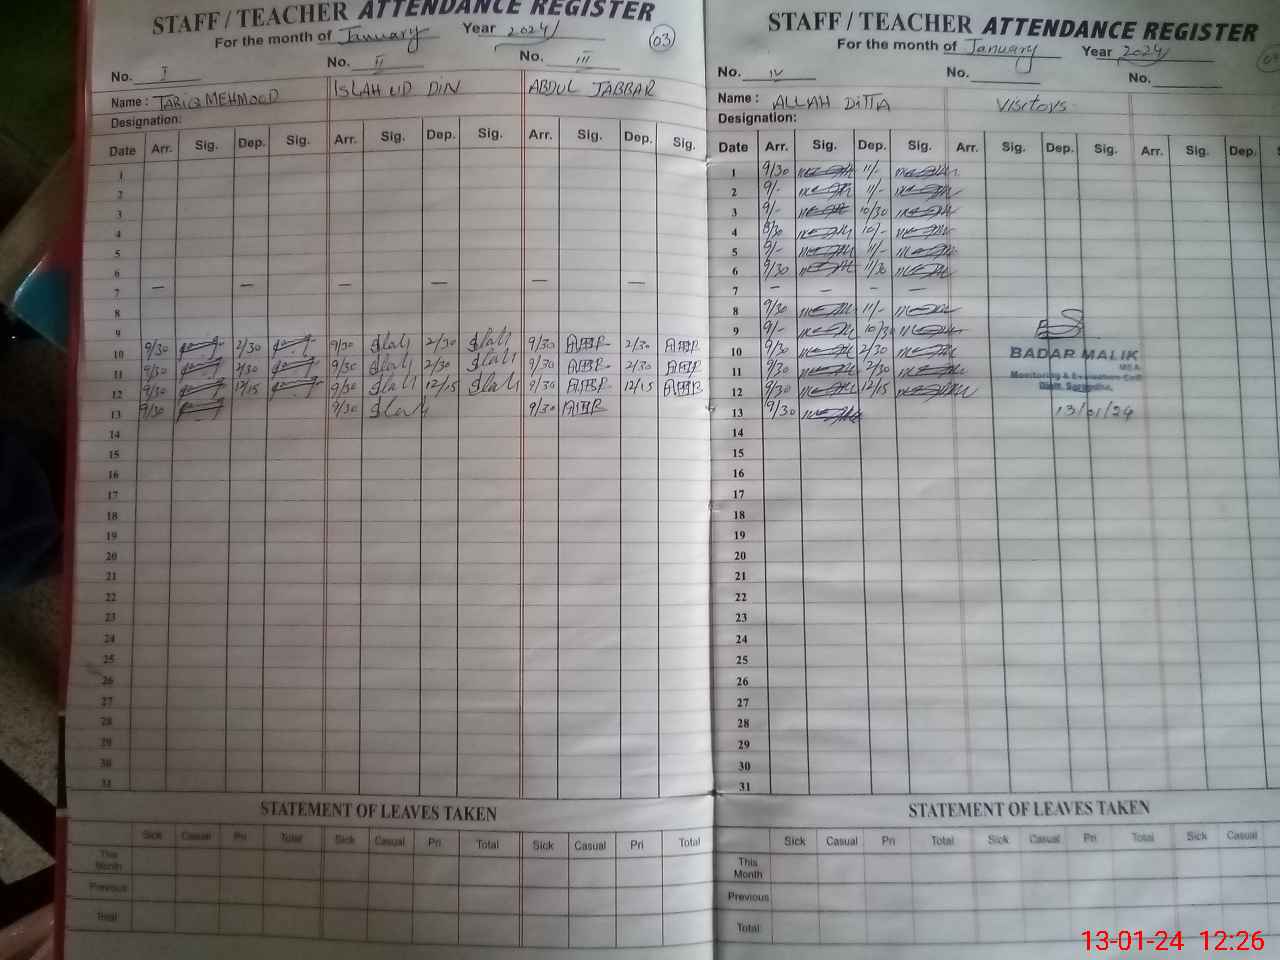 STAFF / TEACHER ATTENDANCE REGISTER
For the month of January Year 2024
03
No. I No. II No. III
Name : TARIQ MEHMOOD ISLAH UD DIN ABDUL JABBAR
Designation:
Date Arr. Sig. Dep. Sig. Arr. Sig. Dep. Sig. Arr. Sig. Dep. Sig.
1
2
3
4
5
6
7 — — — — — —
8
9
10 9/30 2/30 9/30 Islah 2/30 Islah 9/30 2/30
11 9/30 2/30 9/30 Islah 2/30 Islah 9/30 2/30
12 9/30 12/15 9/30 Islah 12/15 Islah 9/30 12/15
13 9/30 9/30 Islah 9/30
14
15
16
17
18
19
20
21
22
23
24
25
26
27
28
29
30
31
STATEMENT OF LEAVES TAKEN
Sick Casual Pri Total Sick Casual Pri Total Sick Casual Pri Total
This Month
Previous
Total
STAFF / TEACHER ATTENDANCE REGISTER
For the month of January Year 2024
No. IV No. No.
Name : ALLAH DITTA Visitors
Designation:
Date Arr. Sig. Dep. Sig. Arr. Sig. Dep. Sig. Arr. Sig. Dep.
1 9/30 11/-
2 9/- 11/-
3 9/- 10/30
4 8/30 10/-
5 9/- 11/-
6 9/30 11/30
7 — — — —
8 9/30 11/-
9 9/- 10/30
10 9/30 2/30
11 9/30 2/30
12 9/30 12/15
13 9/30
BADAR MALIK
MEA
Monitoring & Evaluation Cell
13/01/24
14
15
16
17
18
19
20
21
22
23
24
25
26
27
28
29
30
31
STATEMENT OF LEAVES TAKEN
Sick Casual Pri Total Sick Casual Pri Total Sick Casual
This Month
Previous
Total
13-01-24 12:26